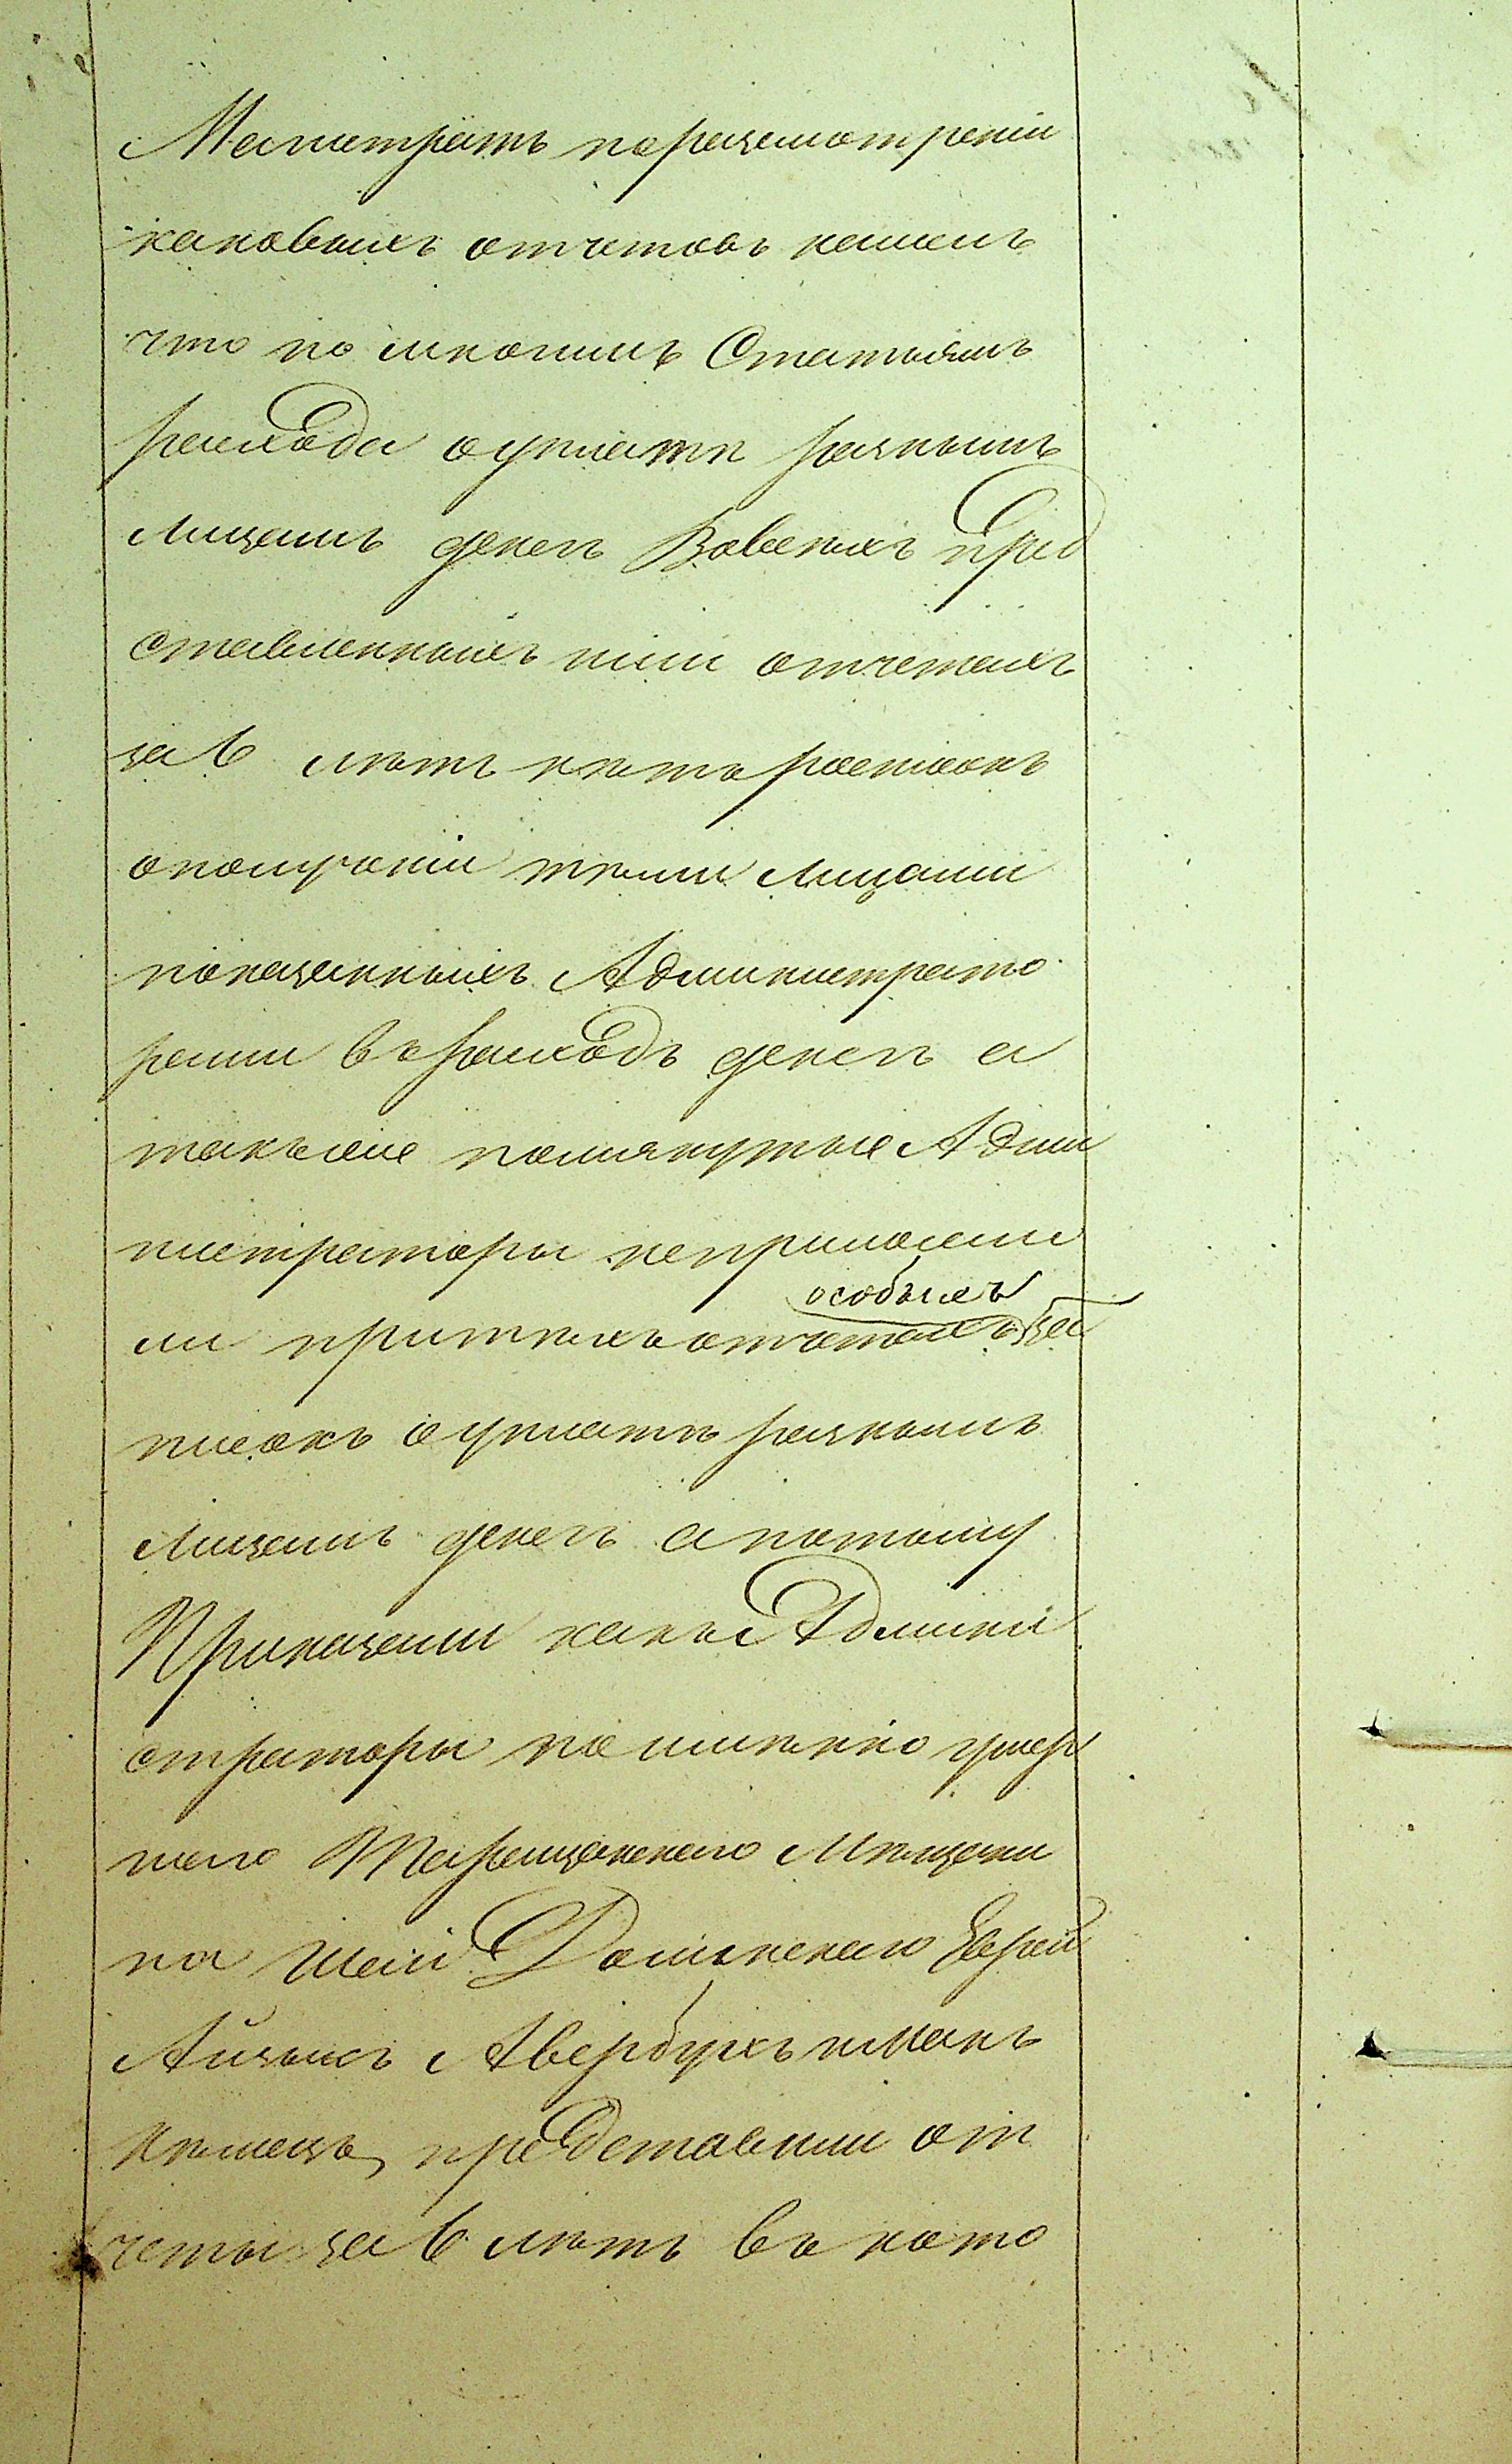 Магистратъ поразсмотреніи
каковыхъ отчетовъ нашелъ
что по многимъ Статьямъ
расхода оуплатѣ разнымъ
Лицамъ денегъ Вовсѣхъ пред
ставленныхъ ими отчетахъ
за 6 лѣтъ нѣтъ росписокъ
ополученіи тѣми Лицами
показанныхъ Администрато
рами въ расходъ денегъ а
такъже помянутые Адми
нистраторы неприложи
ли притѣхъ отчетахъ особыхъ за
писокъ оуплатѣ разнымъ
Лицамъ денегъ а потому
Приказали какъ Админи
страторы по имѣнію умер
шаго Таращанскаго Мѣщани
на Шаи Долинскаго Еврей
Айзыкъ Авербухъ
представили от
четы за 6 лѣтъ въ кото